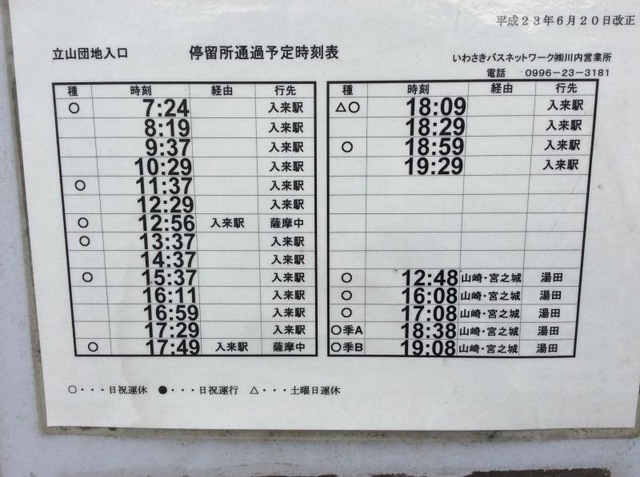 平成23年6月20日改正
立山団地入口 停留所通過予定時刻表
いわさきバスネットワーク㈱川内営業所
電話 0996-23-3181
種 時刻 経由 行先
○ 7:24 入来駅
8:19 入来駅
9:37 入来駅
10:29 入来駅
○ 11:37 入来駅
12:29 入来駅
○ 12:56 入来駅 薩摩中
○ 13:37 入来駅
14:37 入来駅
○ 15:37 入来駅
16:11 入来駅
16:59 入来駅
17:29 入来駅
○ 17:49 入来駅 薩摩中
種 時刻 経由 行先
△○ 18:09 入来駅
18:29 入来駅
○ 18:59 入来駅
19:29 入来駅
○ 12:48 山崎・宮之城 湯田
○ 16:08 山崎・宮之城 湯田
○ 17:08 山崎・宮之城 湯田
○季A 18:38 山崎・宮之城 湯田
○季B 19:08 山崎・宮之城 湯田
○・・・日祝運休 ●・・・日祝運行 △・・・土曜日運休